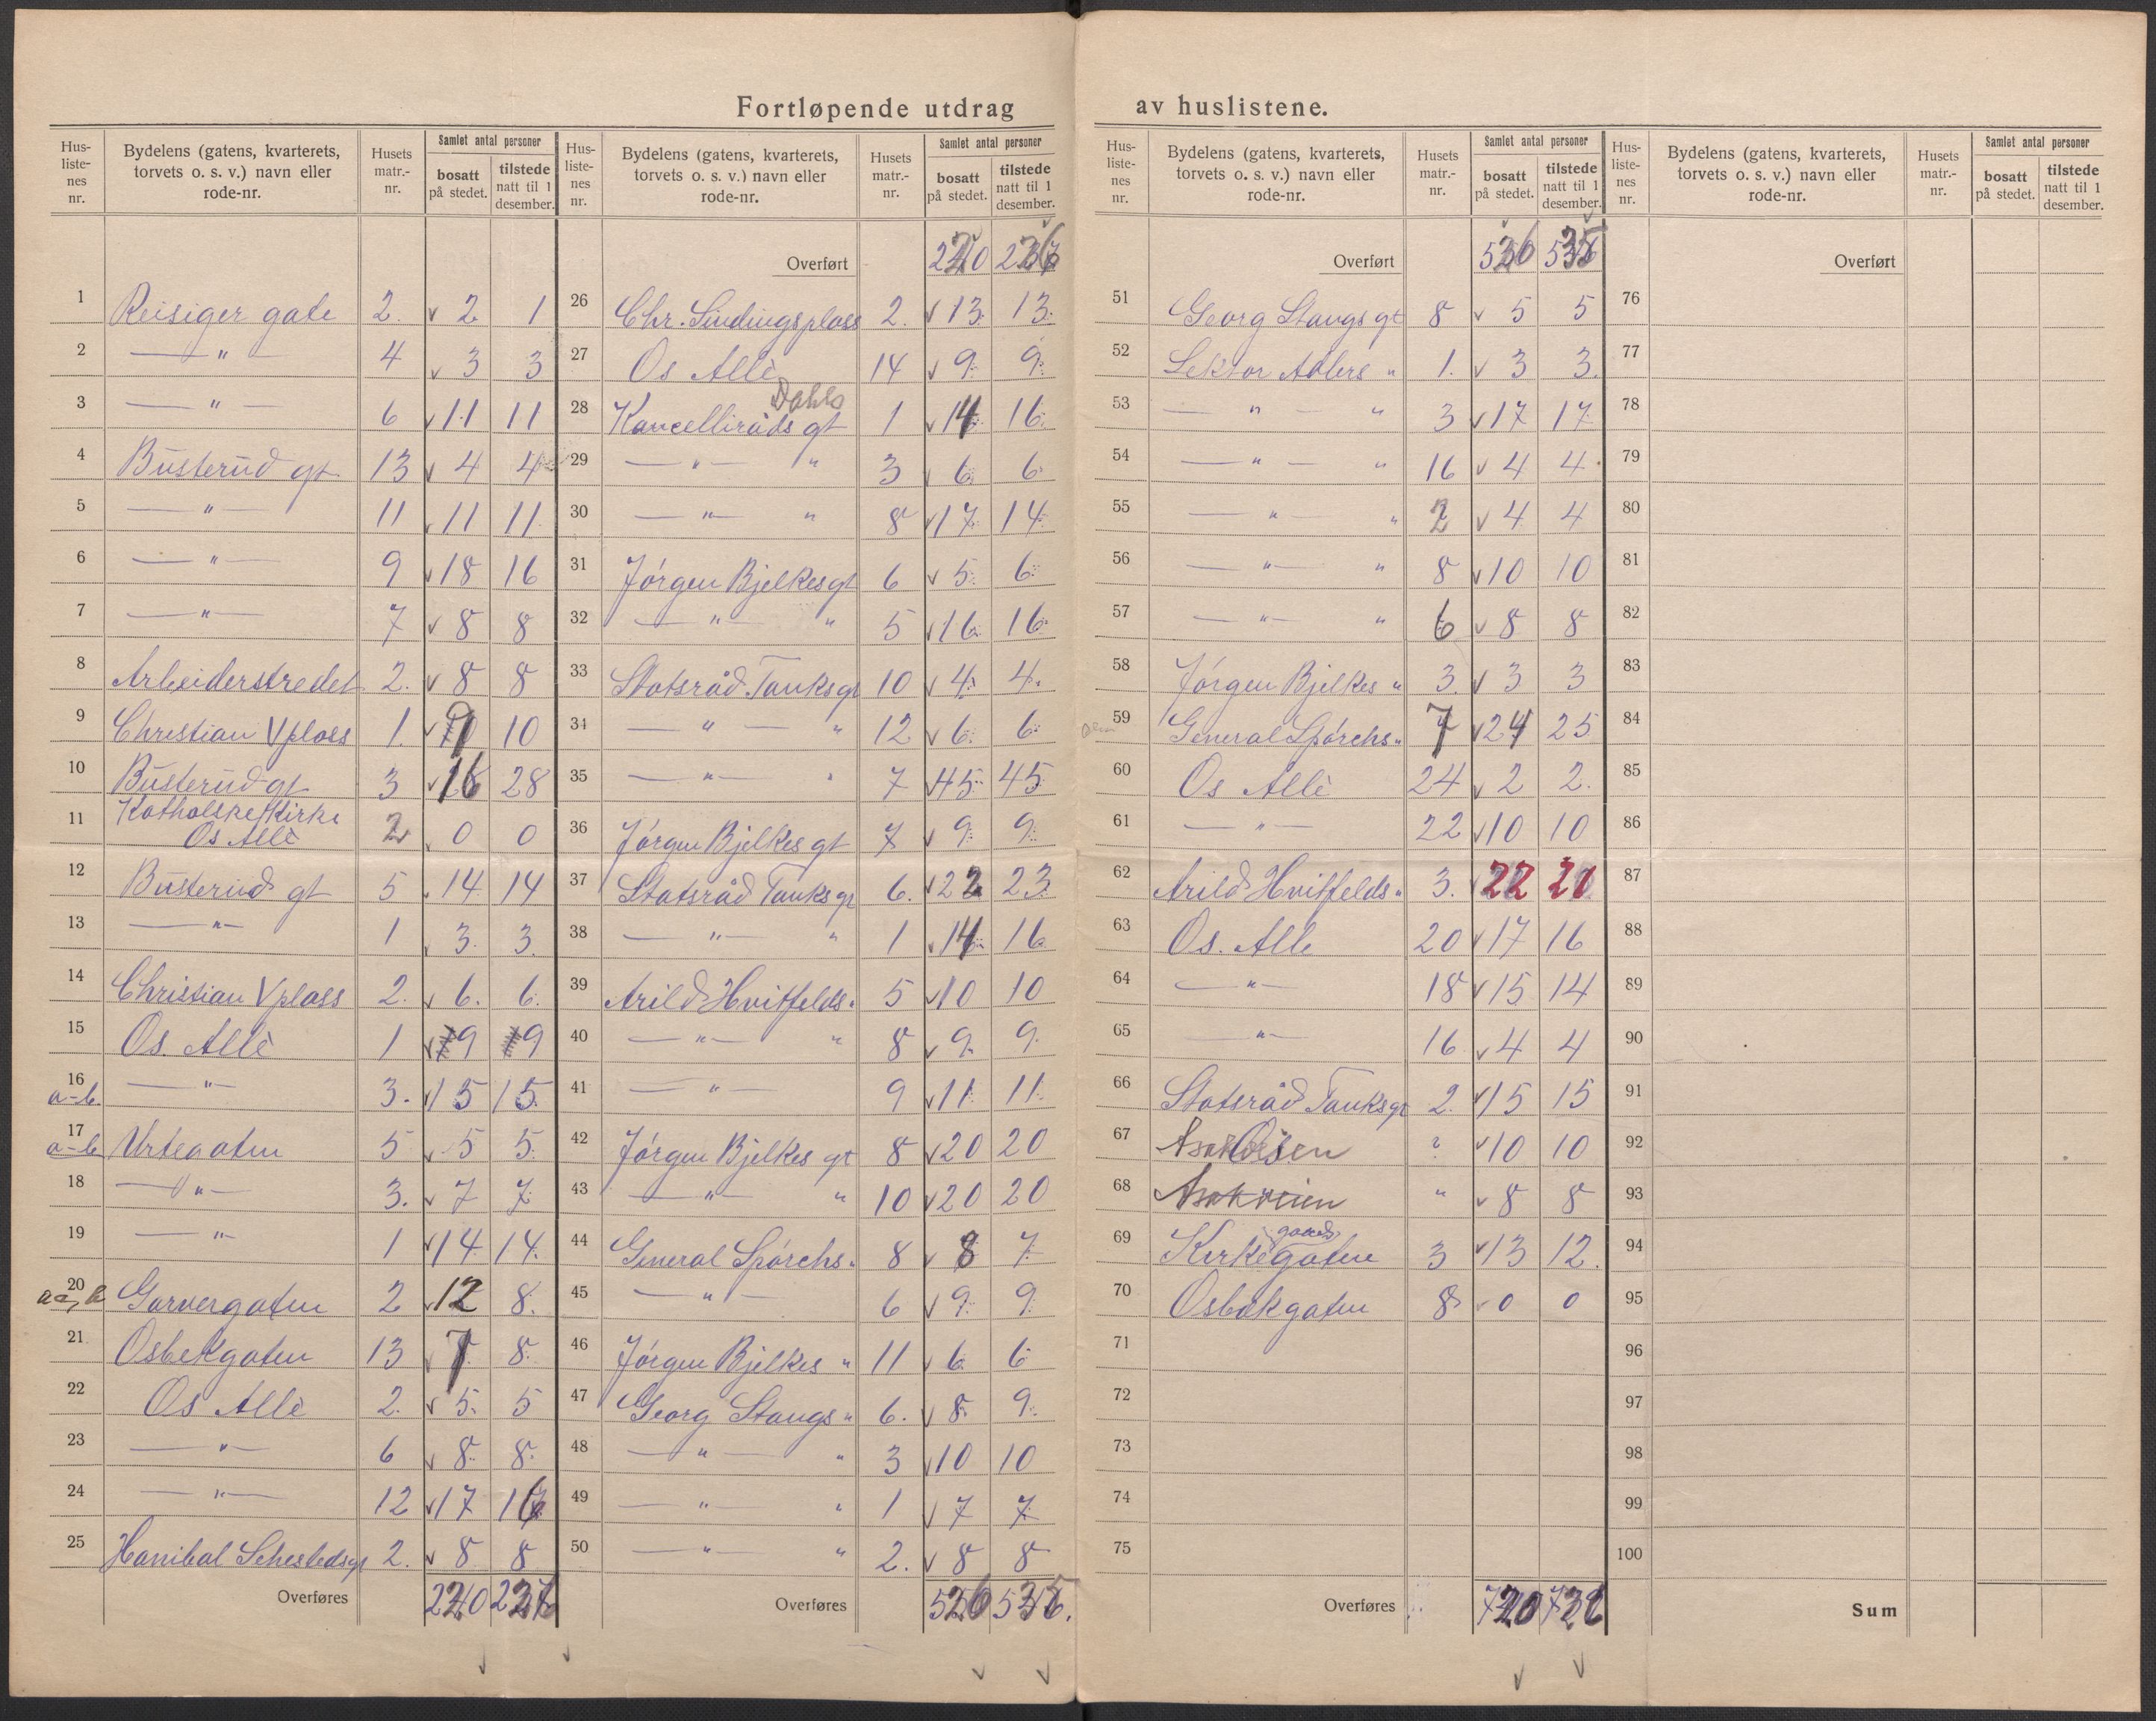 Fortløpende utdrag av huslistene.
Hus-listenes nr. | Bydelens (gatens, kvarterets, torvets o. s. v.) navn eller rode-nr. | Husets matr.-nr. | Samlet antal personer | bosatt på stedet. | tilstede natt til 1 desember.
1 Reisiger gate 2. 2 1
2 — " — 4 3 3
3 — " — 6 11 11
4 Busterud gt 13 4 4
5 — " — 11 11 11
6 — " — 9 18 16
7 — " — 7 8 8
8 Arbeiderstredet 2. 8 8
9 Christian V plass 1. 10
10 Busterud gt 3 16 28
11 Katholske Kirke
Os Allè 2 0 0
12 Busterud gt 5 14 14
13 — " — 1 3. 3.
14 Christian V plass 2. 6. 6.
15 Os. Allè 1 9 9
16 a-b. — " — 3. 15 15.
17 a-b Urtegaten 5 5 5.
18 — " — 3. 7 7.
19 — " — 1 14 14.
20 Garvergaten 2 12 8.
21 Osbekgaten 13 7 8.
22 Os Allè 2. 5. 5
23 — " — 6 8. 8.
24 — " — 12 17 16
25 Hanibal Sehestedsgt 2. 8 8
Overføres 220
Hus-listenes nr. | Bydelens (gatens, kvarterets, torvets o. s. v.) navn eller rode-nr. | Husets matr.-nr. | Samlet antal personer | bosatt på stedet. | tilstede natt til 1 desember.
Overført 220 236
26 Chr. Sindings plass 2. 13. 13.
27 Os Allè 14 9. 9.
Dahls
28 Kancelliråds gt 1 14 16.
29 — " — " 3 6. 6.
30 — " — " 8 17. 14.
31 Jørgen Bjelkes gt 6 5. 6.
32 — " — " 5 16. 16.
33 Statsråd Tanks gt 10 4. 4.
34 — " — " 12 6. 6.
35 — " — " 7 45. 45.
36 Jørgen Bjelkes gt 7 9. 9.
37 Statsråd Tanks gt 6. 22 23.
38 — " — " 1 14 16
39 Arild Hvitfelds " 5 10 10
40 — " — " 8 9. 9.
41 — " — 9 11. 11.
42 Jørgen Bjelkes gt 8 20 20
43 — " — " 10 20 20
44 General Spørchs " 8 8 7.
45 — " — 6 9. 9.
46 Jørgen Bjelkes " 11 6 6
47 Georg Stangs " 6. 8. 9.
48 — " — " 3 10 10
49 — " — " 1 7 7
50 — " — " 2. 8 8
Overføres 526 535.
Hus-listenes nr. | Bydelens (gatens, kvarterets, torvets o. s. v.) navn eller rode-nr. | Husets matr.-nr. | Samlet antal personer | bosatt på stedet. | tilstede natt til 1 desember.
Overført 526 535
51 Georg Stangs gt 8 5 5
52 Lektor Adlers " 1. 3 3.
53 — " — " 3 17 17.
54 — " — " 16 4 4.
55 — " — " 2 4 4
56 — " — " 8 10 10
57 — " — " 6 8 8
58 Jørgen Bjelkes " 3. 3 3
59 General Spørchs " 7 24 25
60 Os Allè 24 2 2.
61 — " — 22 10 10
62 Arild Hvitfelds " 3. 22 20
63 Os. Alle 20 17 16
64 — " — 18 15 14
65 — " — 16 4 4
66 Statsråd Tanks gt 2. 15 15
67 10 10
68 Asakveien " 8 8
gaards
69 Kirkegaten 3 13 12.
70 Osbakgaten 8 0 0
71
72
73
74
75
Overføres 720
Hus-listenes nr. | Bydelens (gatens, kvarterets, torvets o. s. v.) navn eller rode-nr. | Husets matr.-nr. | Samlet antal personer | bosatt på stedet. | tilstede natt til 1 desember.
Overført
76
77
78
79
80
81
82
83
84
85
86
87
88
89
90
91
92
93
94
95
96
97
98
99
100
Sum